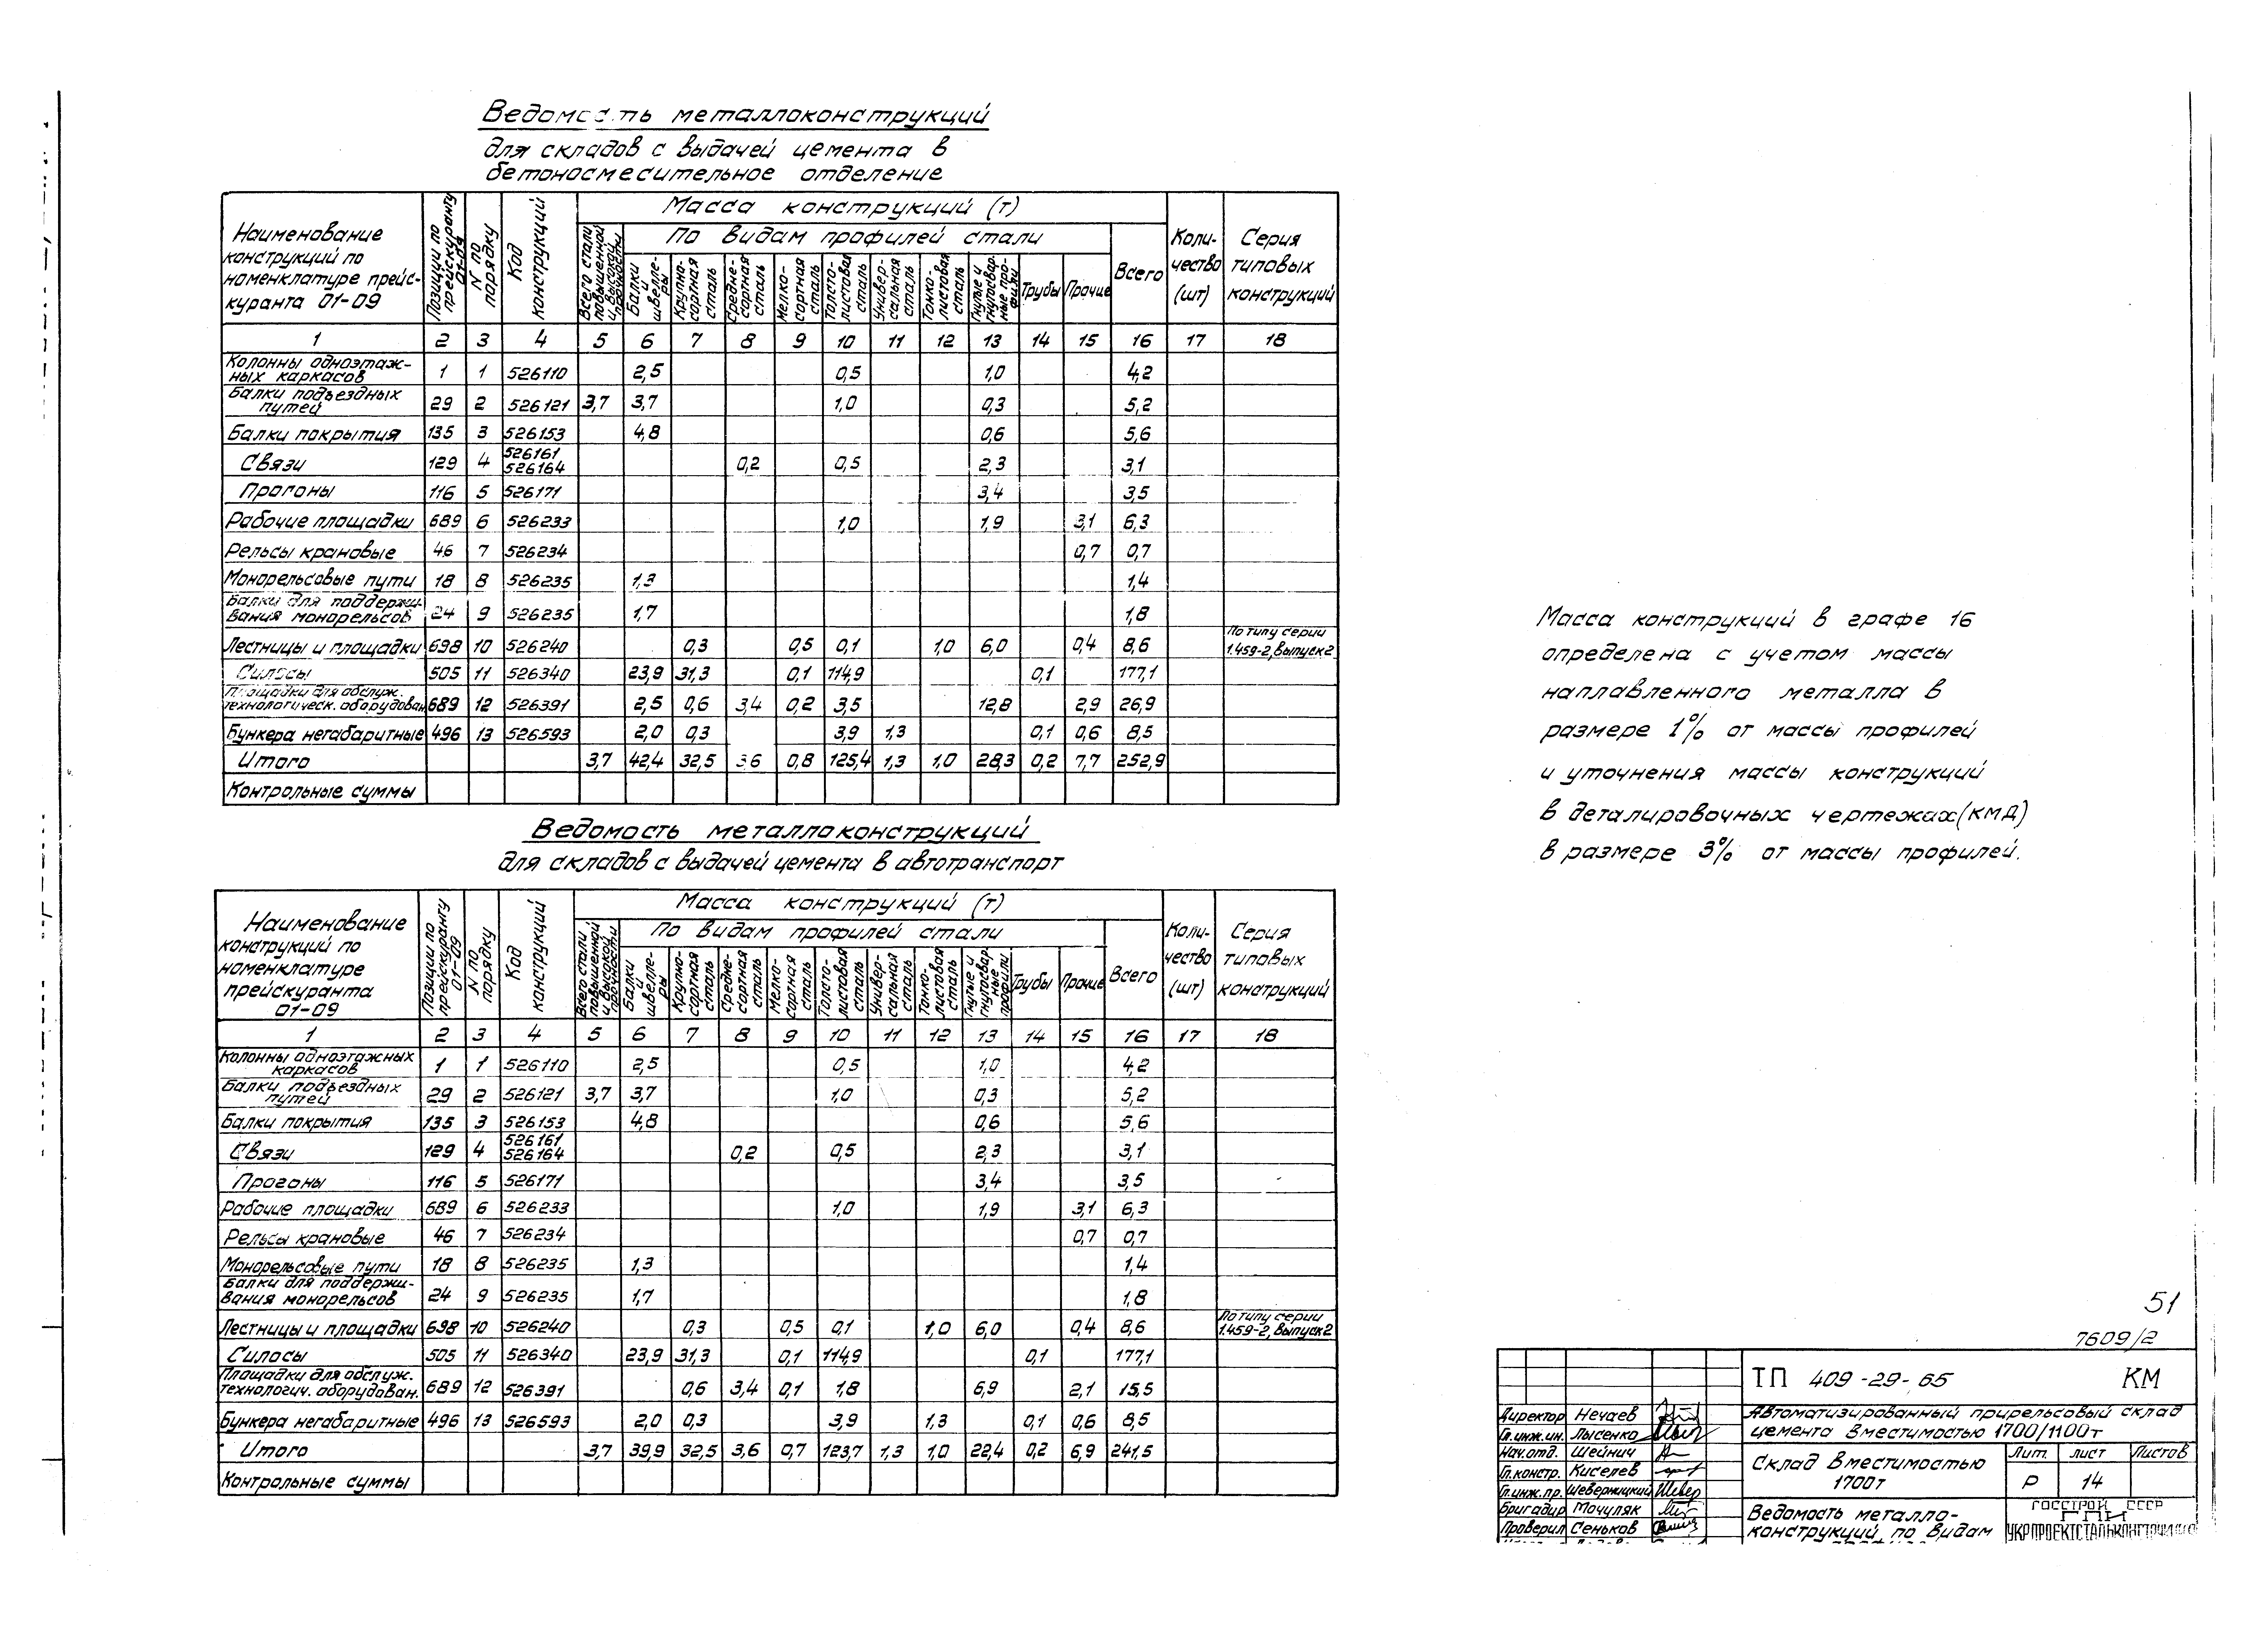 Ведомость металлоконструкций
для складов с выдачей цемента в
бетоносмесительное отделение
Наименование конструкций по номенклатуре прейскуранта 01-09 | Позиции по прейскуранту 01-09 | N по порядку | Код конструкций | Масса конструкций (т) | Количество (шт) | Серия типовых конструкций
Всего стали повышенной и высокой прочности | По видам профилей стали | Всего
Балки и швеллеры | Крупносортная сталь | Среднесортная сталь | Мелкосортная сталь | Толстолистовая сталь | Универсальная сталь | Тонколистовая сталь | Гнутые и гнутосварные профили | Трубы | Прочие
1 2 3 4 5 6 7 8 9 10 11 12 13 14 15 16 17 18
Колонны одноэтажных каркасов 1 1 526110 2,5 0,5 1,0 4,2
Балки подъездных путей 29 2 526121 3,7 3,7 1,0 0,3 5,2
Балки покрытия 135 3 526153 4,8 0,6 5,6
Связи 129 4 526161 526164 0,2 0,5 2,3 3,1
Прогоны 116 5 526171 3,4 3,5
Рабочие площадки 689 6 526233 1,0 1,9 3,1 6,3
Рельсы крановые 46 7 526234 0,7 0,7
Монорельсовые пути 18 8 526235 1,3 1,4
Балки для поддерживания монорельсов 24 9 526235 1,7 1,8
Лестницы и площадки 698 10 526240 0,3 0,5 0,1 1,0 6,0 0,4 8,6 По типу серии 1.459-2, выпуск 2
Силосы 505 11 526340 23,9 31,3 0,1 114,9 0,1 177,1
Площадки для обслуж. технологическ. оборудован. 689 12 526391 2,5 0,6 3,4 0,2 3,5 12,8 2,9 26,9
Бункера негабаритные 496 13 526593 2,0 0,3 3,9 1,3 0,1 0,6 8,5
Итого 3,7 42,4 32,5 3,6 0,8 125,4 1,3 1,0 28,3 0,2 7,7 252,9
Контрольные суммы
Ведомость металлоконструкций
для складов с выдачей цемента в автотранспорт
Наименование конструкций по номенклатуре прейскуранта 01-09 | Позиции по прейскуранту 01-09 | N по порядку | Код конструкций | Масса конструкций (т) | Количество (шт) | Серия типовых конструкций
Всего стали повышенной и высокой прочности | По видам профилей стали | Всего
Балки и швеллеры | Крупносортная сталь | Среднесортная сталь | Мелкосортная сталь | Толстолистовая сталь | Универсальная сталь | Тонколистовая сталь | Гнутые и гнутосварные профили | Трубы | Прочие
1 2 3 4 5 6 7 8 9 10 11 12 13 14 15 16 17 18
Колонны одноэтажных каркасов 1 1 526110 2,5 0,5 1,0 4,2
Балки подъездных путей 29 2 526121 3,7 3,7 1,0 0,3 5,2
Балки покрытия 135 3 526153 4,8 0,6 5,6
Связи 129 4 526161 526164 0,2 0,5 2,3 3,1
Прогоны 116 5 526171 3,4 3,5
Рабочие площадки 689 6 526233 1,0 1,9 3,1 6,3
Рельсы крановые 46 7 526234 0,7 0,7
Монорельсовые пути 18 8 526235 1,3 1,4
Балки для поддерживания монорельсов 24 9 526235 1,7 1,8
Лестницы и площадки 698 10 526240 0,3 0,5 0,1 1,0 6,0 0,4 8,6 По типу серии 1.459-2, выпуск 2
Силосы 505 11 526340 23,9 31,3 0,1 114,9 0,1 177,1
Площадки для обслуж. технологич. оборудован. 689 12 526391 0,6 3,4 0,1 1,8 6,9 2,1 15,5
Бункера негабаритные 496 13 526593 2,0 0,3 3,9 1,3 0,1 0,6 8,5
Итого 3,7 39,9 32,5 3,6 0,7 123,7 1,3 1,0 22,4 0,2 6,9 241,5
Контрольные суммы
Масса конструкций в графе 16
определена с учетом массы
наплавленного металла в
размере 1% от массы профилей
и уточнения массы конструкций
в деталировочных чертежах (КМД)
в размере 3% от массы профилей.
51
7609/2
ТП 409-29-65 КМ
Директор Нечаев
Гл.инж.ин. Лысенко
Нач.отд. Шейнич
Гл.констр. Киселев
Гл.инж.пр. Шеверницкий
Бригадир Мочуляк
Проверил Сеньков
Автоматизированный прирельсовый склад
цемента вместимостью 1700/1100т
Склад вместимостью
1700т
Лит. лист Листов
Р 14
Ведомость металло-
конструкций по видам
ГОССТРОЙ СССР
ГПИ